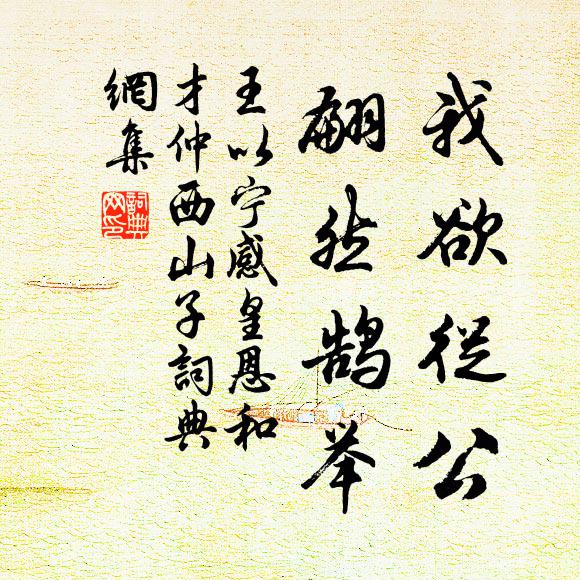 我欲從公
翩然鹄举
王以宁感皇恩和
才仲西山子詞典
網集
詞典
网印